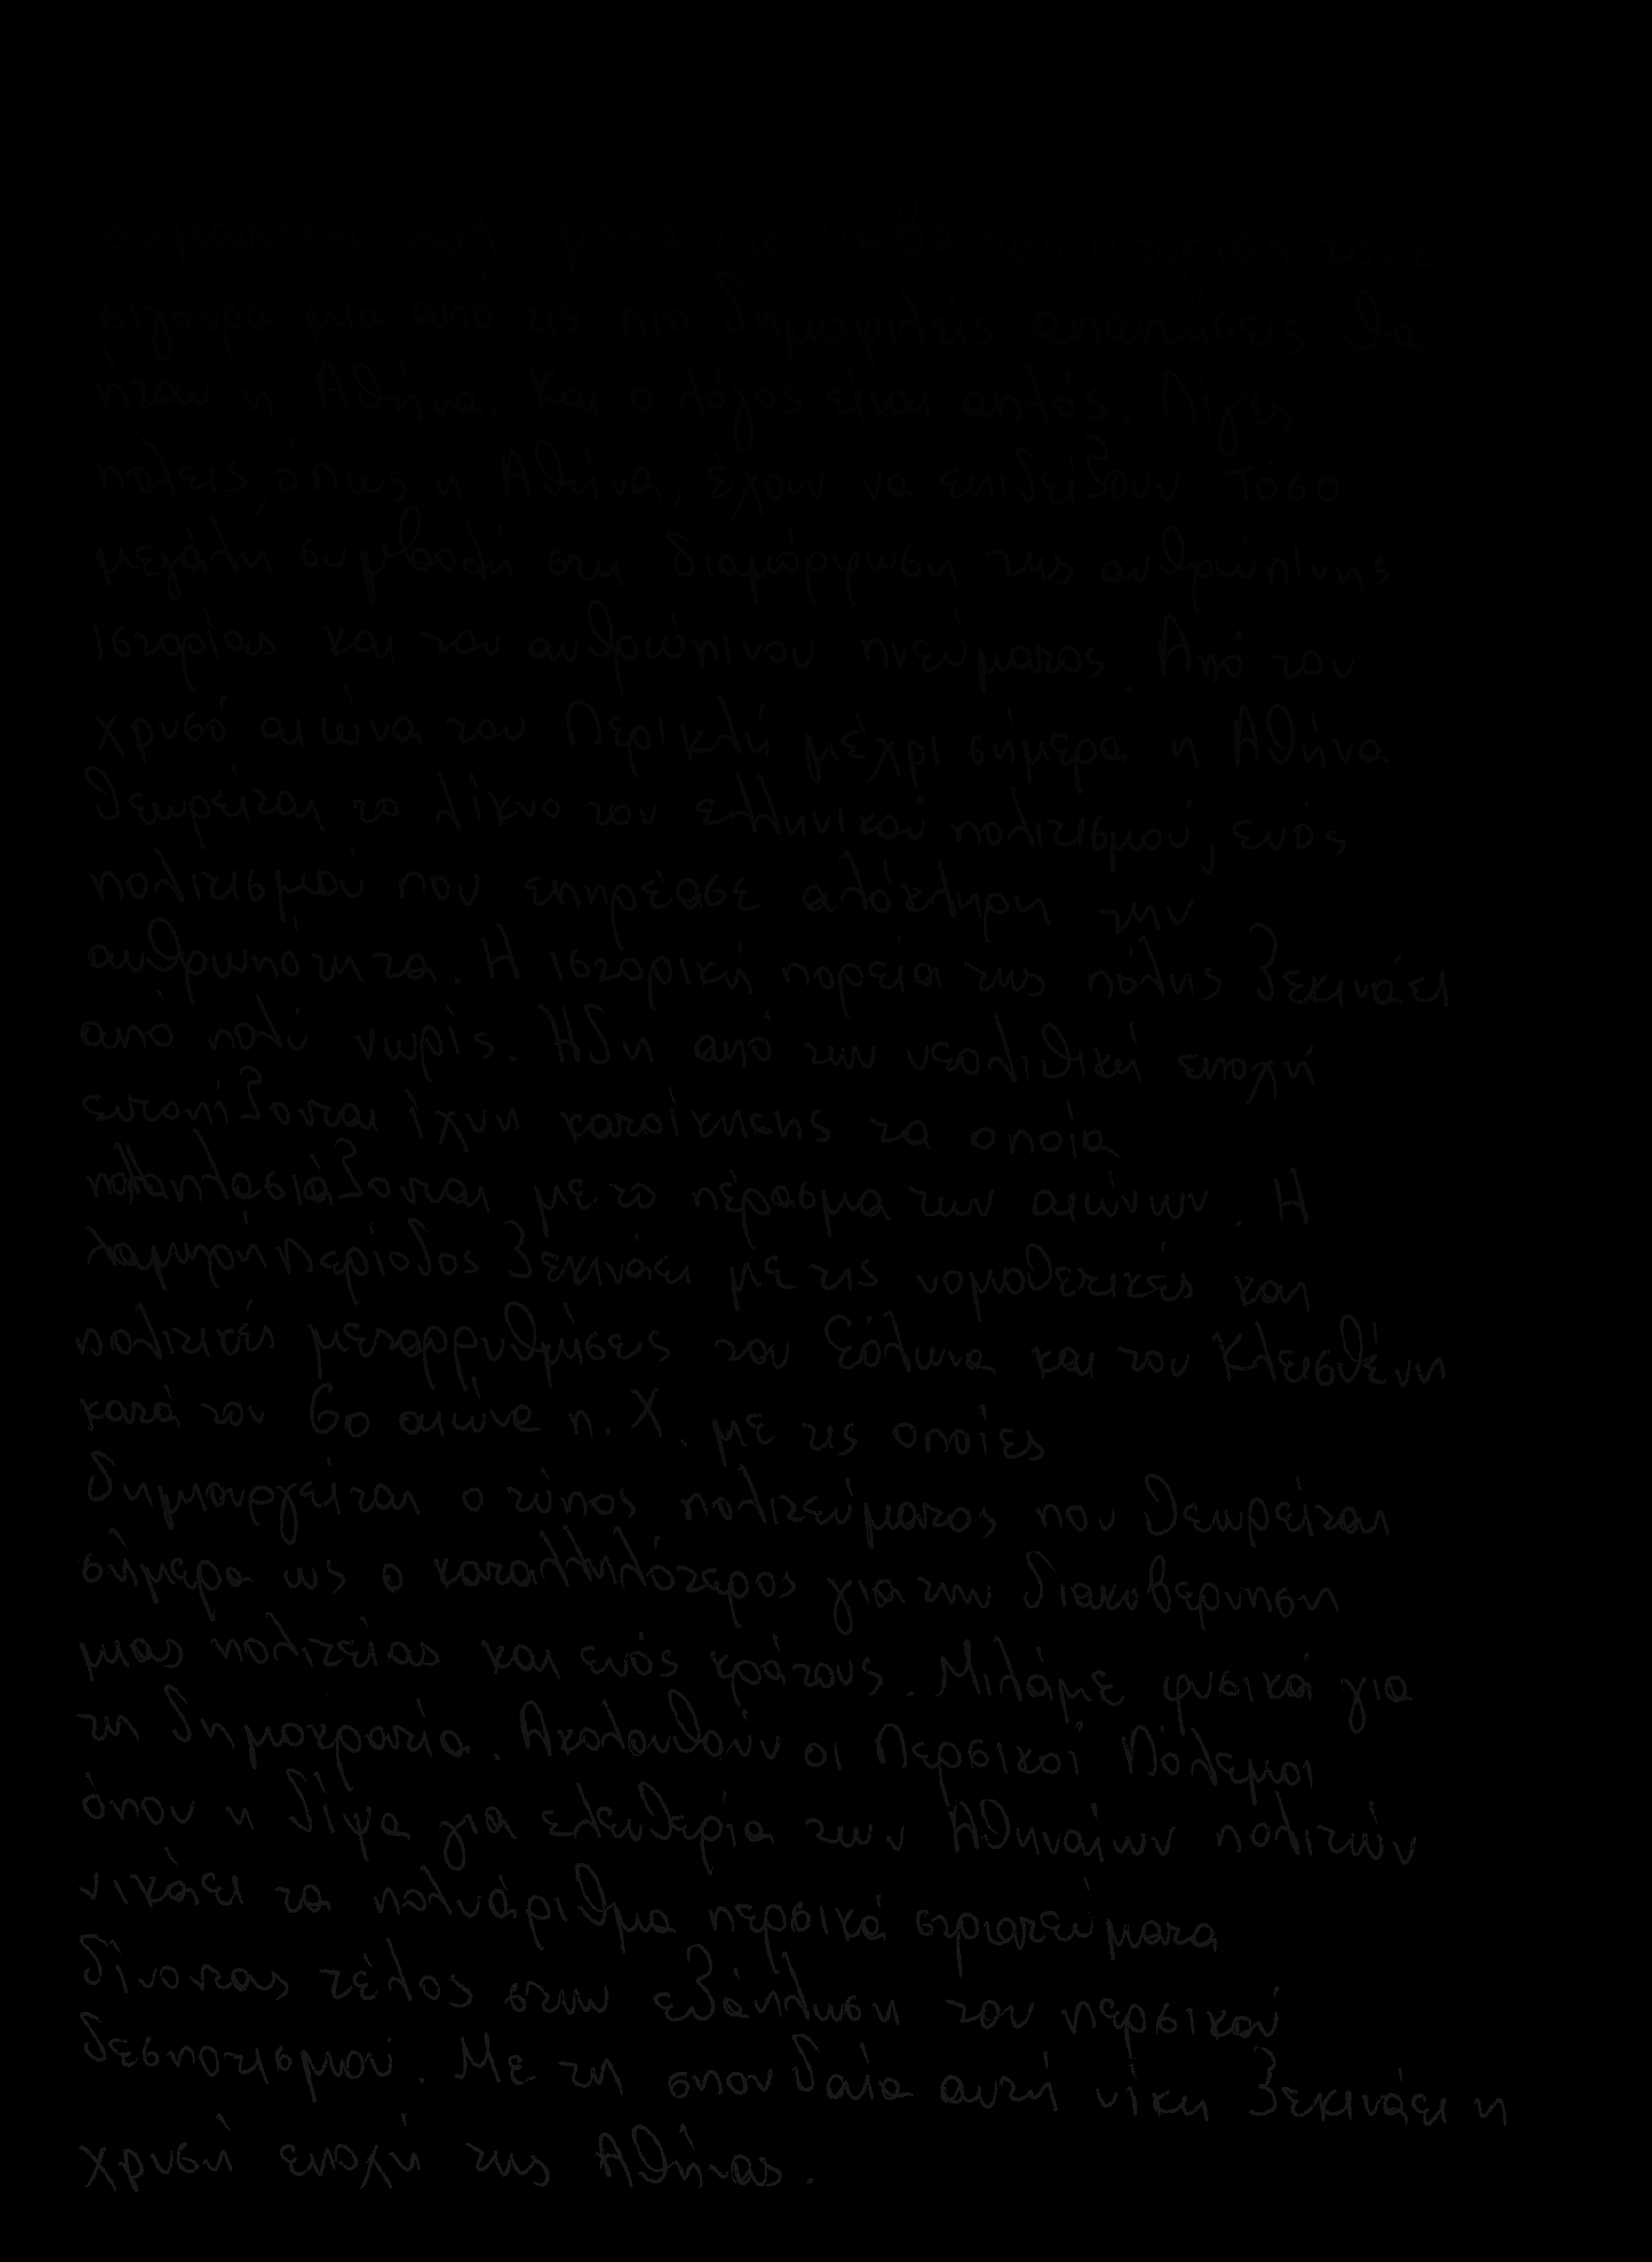 σημαντική πόλη μέσα στο διάβα της ιστορίας τότε
σίγουρα μια από τις πιο δημοφιλείς απαντήσεις θα
ήταν η Αθήνα. Και ο λόγος είναι απλός. Λίγες
πόλεις, όπως η Αθήνα, έχουν να επιδείξουν τόσο
μεγάλη συμβολή στη διαμόρφωση της ανθρώπινης
ιστορίας και του ανθρώπινου πνεύματος. Από τον
χρυσό αιώνα του Περικλή μέχρι σήμερα η Αθήνα
θεωρείται το λίκνο του ελληνικού πολιτισμού, ενός
πολιτισμού που επηρέασε ολόκληρη την
ανθρωπότητα. Η ιστορική πορεία της πόλης ξεκινάει
από πολύ νωρίς. Ήδη από την νεολιθική εποχή
εντοπίζονται ίχνη κατοίκησης τα οποία
πολλαπλασιάζονται με το πέρασμα των αιώνων. Η
λαμπρή περίοδος ξεκινάει με τις νομοθετικές και
πολιτικές μεταρρυθμίσεις του Σόλωνα και του Κλεισθένη
κατά τον 6ο αιώνα π.Χ. με τις οποίες
δημιουργείται ο τύπος πολιτεύματος που θεωρείται
σήμερα ως ο καταλληλότερος για την διακυβέρνηση
μιας πολιτείας και ενός κράτους. Μιλάμε φυσικά για
τη δημοκρατία. Ακολουθούν οι Περσικοί Πόλεμοι
όπου η δίψα για ελευθερία των Αθηναίων πολιτών
νικάει τα πολυάριθμα περσικά στρατεύματα
δίνοντας τέλος στην εξάπλωση του περσικού
δεσποτισμού. Με τη σπουδαία αυτή νίκη ξεκινάει η
χρυσή εποχή της Αθήνας.